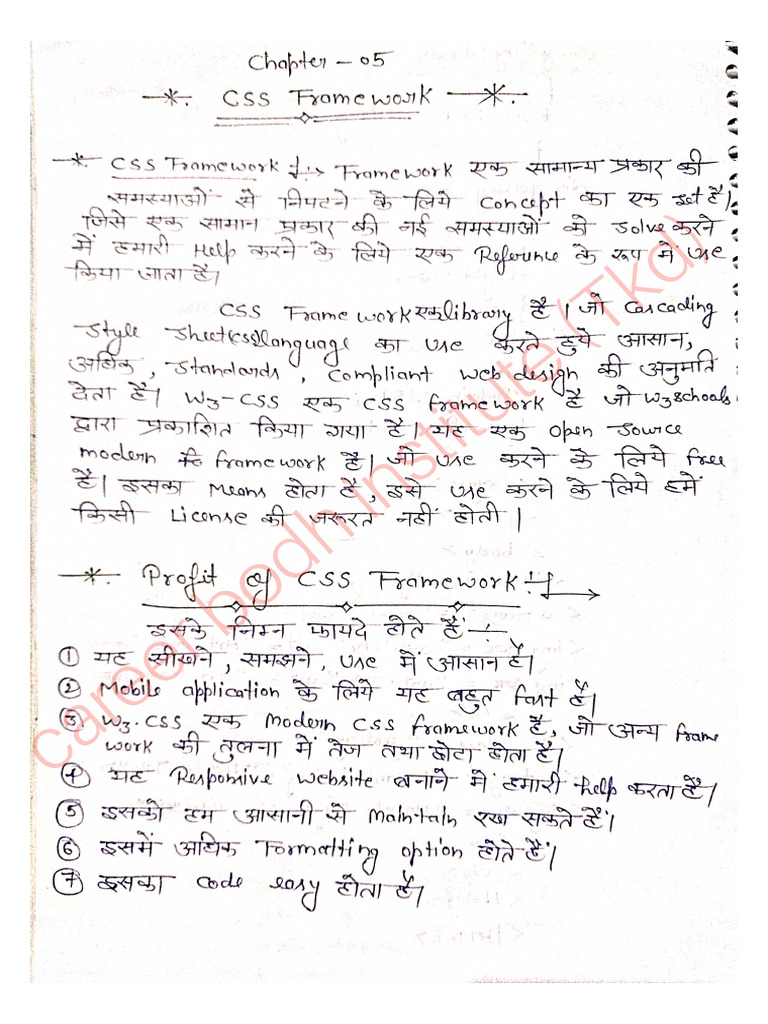 Chapter - 05
CSS Framework
CSS Framework :→ Framework एक सामान्य प्रकार की
समस्याओं से निपटने के लिये Concept का एक set है।
जिसे एक सामान प्रकार की नई समस्याओं को solve करने
में हमारी Help करने के लिये एक Reference के रूप में use
किया जाता है।
CSS Framework एक library है। जो Cascading
Style Sheet(css) language का use करते हुये आसान,
अधिक, Standards, Compliant web design की अनुमति
देता है। W3-CSS एक CSS framework है जो W3schools
द्वारा प्रकाशित किया गया है। यह एक open source
modern framework है। जो use करने के लिये free
है। इसका Means होता है, इसे use करने के लिये हमें
किसी License की जरूरत नहीं होती।
Profit of CSS Framework :→
इसके निम्न फायदे होते हैं :-
① यह सीखने, समझने, use में आसान है।
② Mobile application के लिये यह बहुत fast है।
③ W3.CSS एक Modern CSS framework है, जो अन्य frame
work की तुलना में तेज तथा छोटा होता है।
④ यह Responsive website बनाने में हमारी help करता है।
⑤ इसको हम आसानी से Maintain रख सकते हैं।
⑥ इसमें अधिक Formatting option होते हैं।
⑦ इसका code easy होता है।
career bodh institute (Tkd)